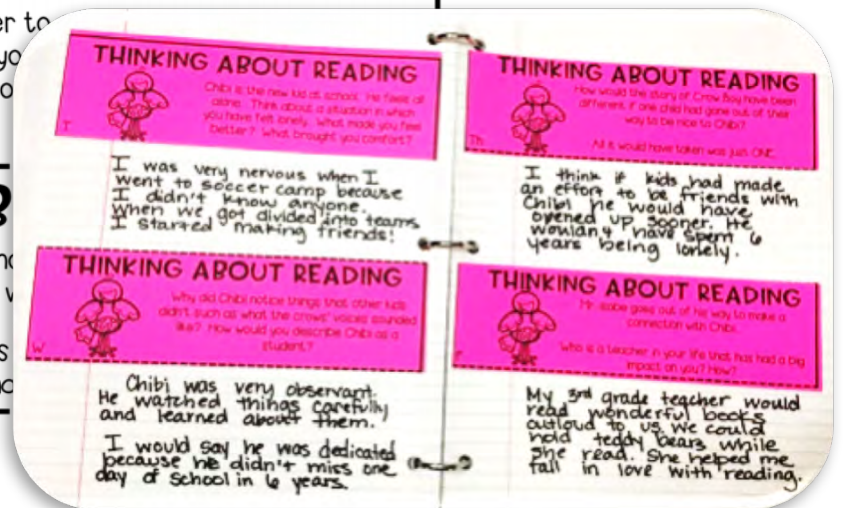 er to
yo
THINKING ABOUT READING
Chibi is the new kid at school. He feels all
alone. Think about a situation in which
you have felt lonely. What made you feel
better? What brought you comfort?
T
I was very nervous when I
went to soccer camp because
I didn't know anyone.
When we got divided into teams
I started making friends!
THINKING ABOUT READING
Why did Chibi notice things that other kids
didn't such as what the crows' voices sounded
like? How would you describe Chibi as a
student?
W
Chibi was very observant.
He watched things carefully
and learned about them.
I would say he was dedicated
because he didn't miss one
day of school in 6 years.
THINKING ABOUT READING
How would the story of Crow Boy have been
different if one child had gone out of their
way to be nice to Chibi?
All it would have taken was just ONE.
Th
I think if kids had made
an effort to be friends with
Chibi he would have
opened up sooner. He
wouldn't have spent 6
years being lonely.
THINKING ABOUT READING
Mr. Isobe goes out of his way to make a
connection with Chibi.
Who is a teacher in your life that has had a big
impact on you? How?
F
My 3rd grade teacher would
read wonderful books
outloud to us. We could
hold teddy bears while
she read. She helped me
fall in love with reading.